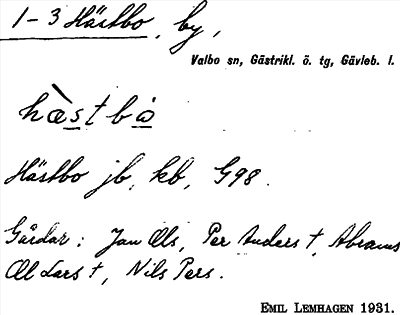 1-3 Hästbo, by,
Valbo sn, Gästrikl. ö. tg, Gävleb. l.
hæ̀stbo̲
Hästbo jb, kb, G98.
Gårdar: Jan Ols, Per Anders †, Abrams
Ol Lars †, Nils Pers.
EMIL LEMHAGEN 1931.